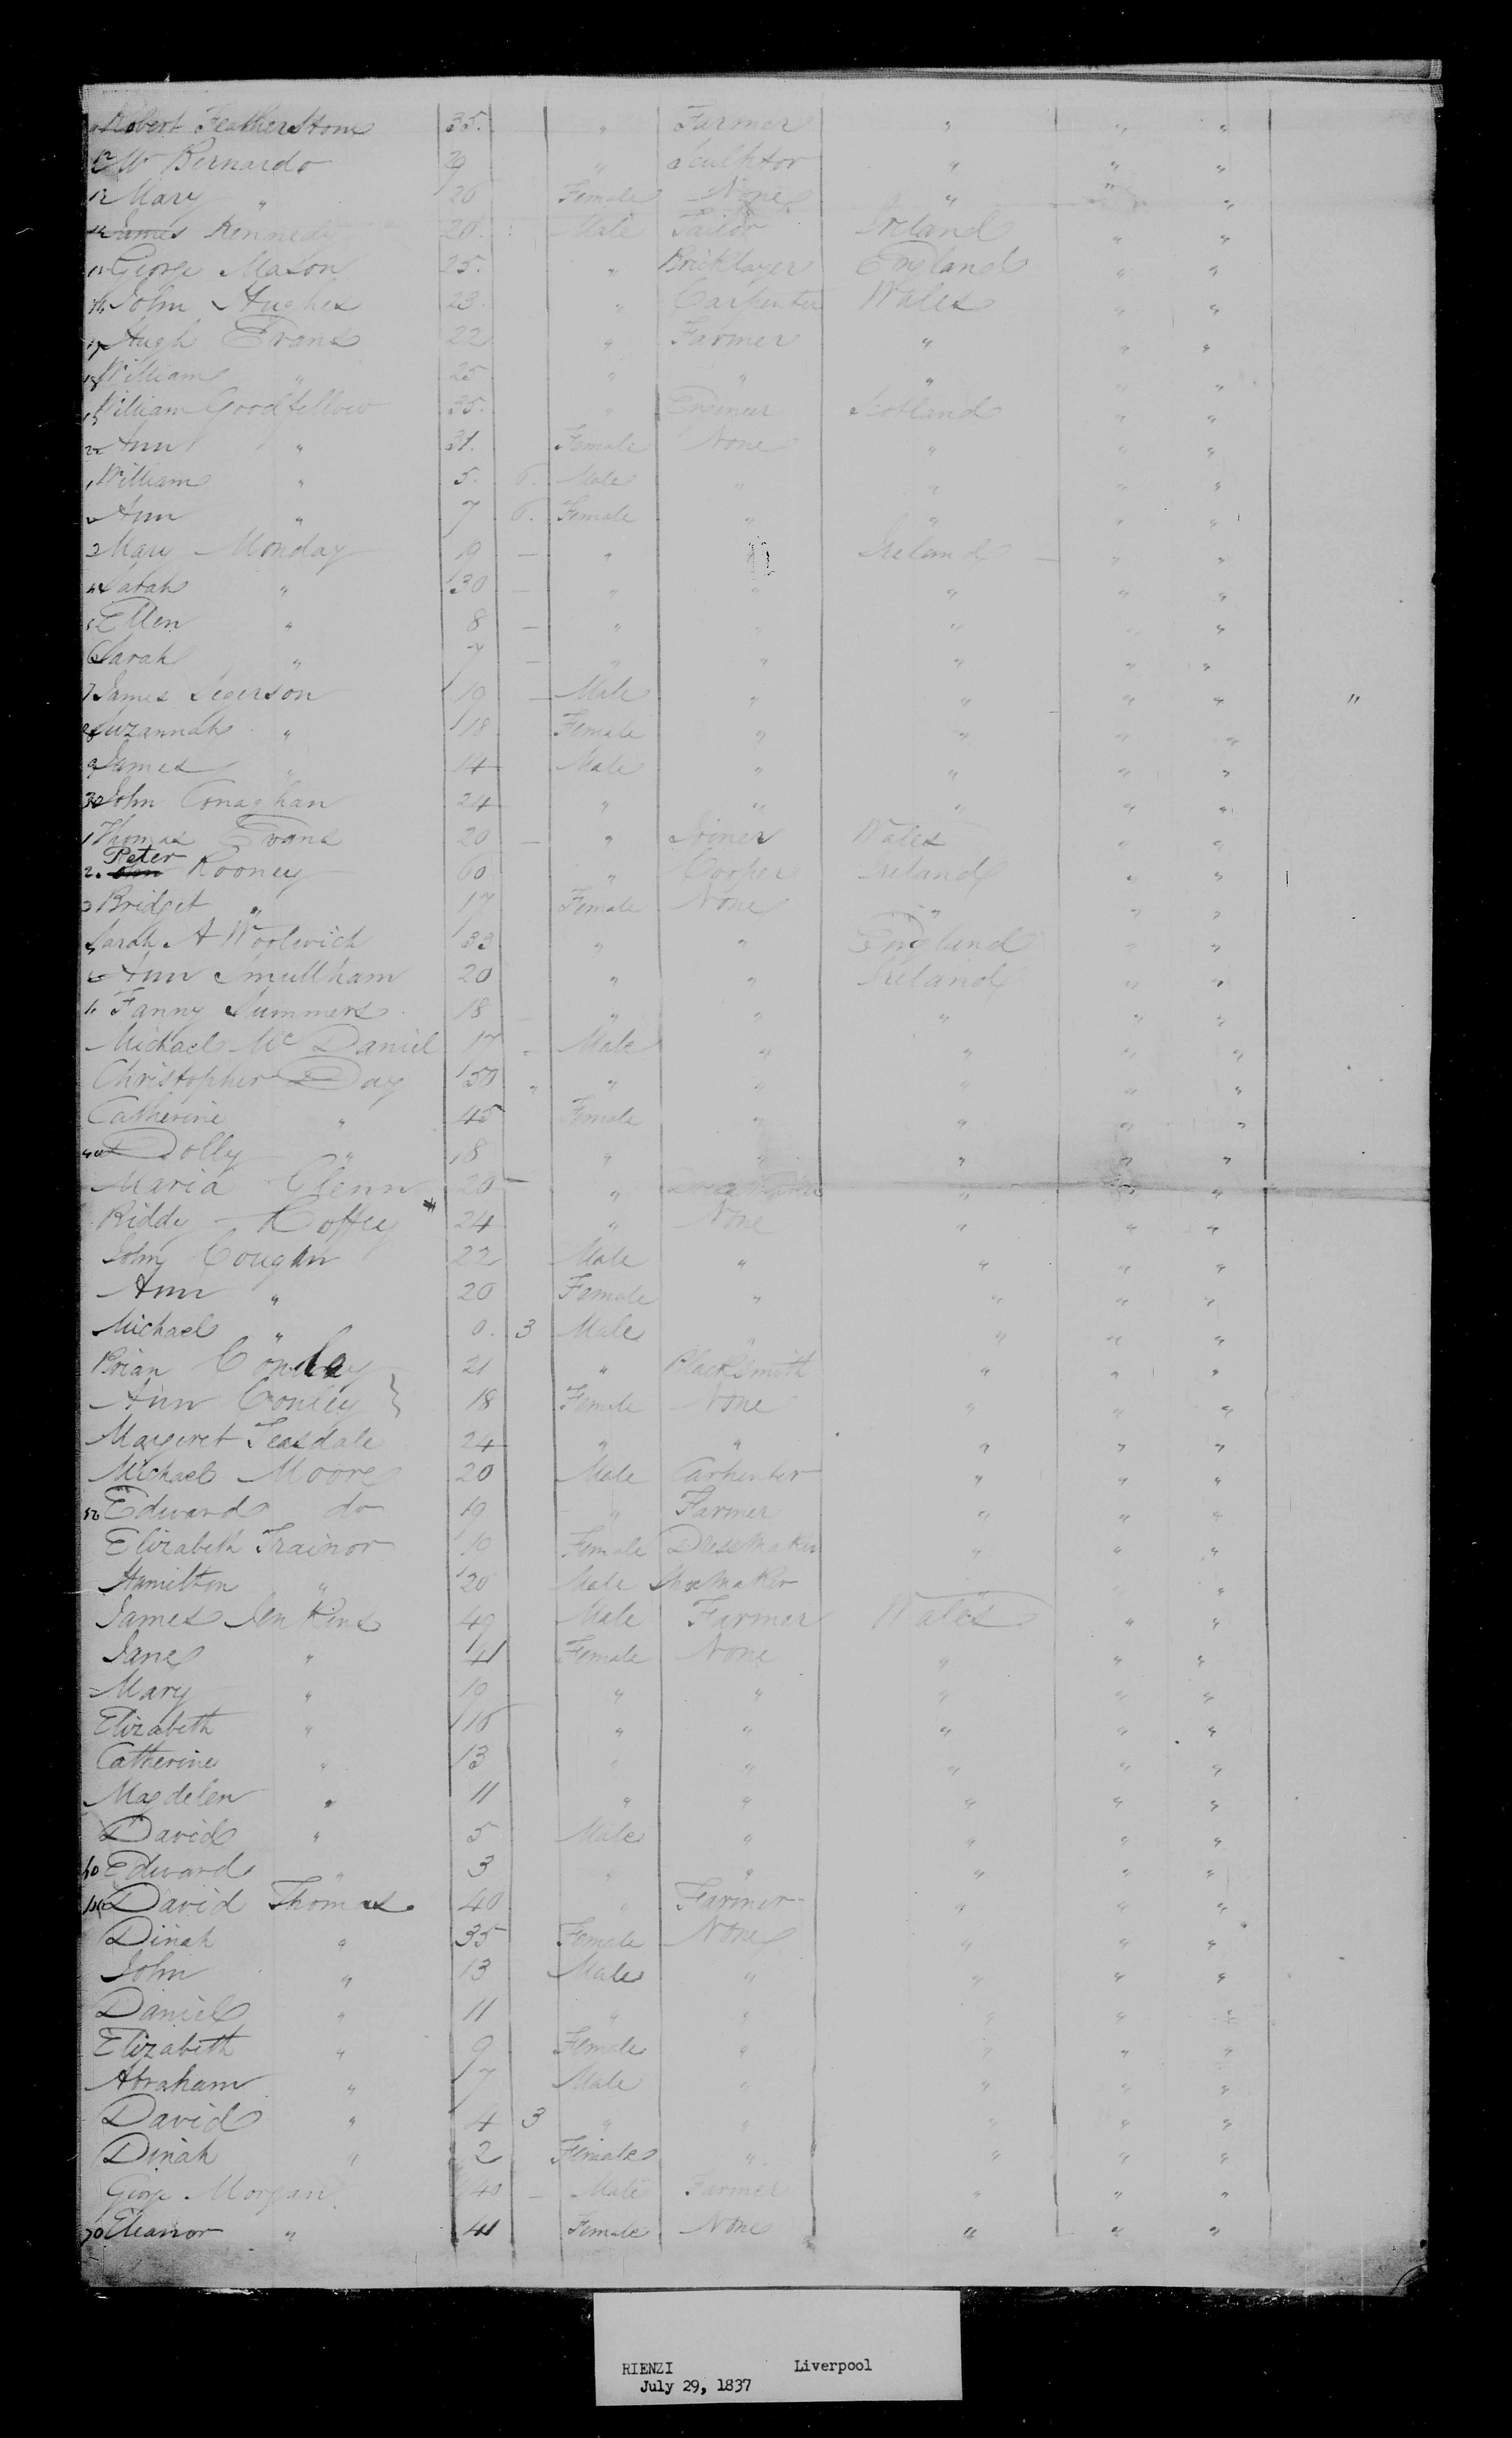 Robert Featherstone 35. " Farmer " " "
12 Wm Bernardo 29 " Sculptor " " "
13 Mary " 26 Female None " " "
14 James Kennedy 20. Male Tailor Ireland " "
15 George Mason 25. " Bricklayer England " "
16 John Hughes 23. " Carpenter Wales " "
17 Hugh Evans 22 " Farmer " " "
18 William " 25 " " " " "
19 William Goodfellow 35. " Engineer Scotland " "
20 Ann " 31. Female None " " "
1 William " 5. 6. Male " " " "
2 Ann " 7 6. Female " " " "
3 Mary Monday 19 — " " Ireland " "
4 Sarah " 30 — " " " " "
5 Ellen " 8 — " " " " "
6 Sarah " 7 — " " " " "
7 James Segerson 19 — Male " " " " "
8 Suzannah " 18 Female " " " "
9 James " 14 Male " " " "
30 John Conaghan 24 " " " " "
1 Thomas Evans 20 — " Joiner Wales " "
2. Peter John Rooney 60 " Cooper Ireland " "
3 Bridget " 17 Female None " " "
Sarah A Woolwich 33 " " England " "
Ann Smullham 20 " " Ireland " "
Fanny Summers 18 " " " " "
Michael Mc Daniel 17 Male " " " "
Christopher Day 50 " " " " " "
Catherine " 45 Female " " " "
40 Dolly " 18 " " " " "
Maria Glenn 20 — " " " "
Riddy Coffey 24 " None " " "
John Cougan 22 Male " " " "
Ann " 20 Female " " " "
Michael " 0. 3 Male " " " "
Brian Conley 21 " Blacksmith " " "
Ann Conley 18 Female None " " "
Margeret Teasdale 24 " " " " "
Michael Moore 20 Male Carpenter " " "
50 Edward do 19 " Farmer " " "
Elizabeth Trainor 19 Female Dressmaker " " "
Hamilton " 20 Male Shoemaker " " "
James Jenkins 49 Male Farmer Wales " "
Jane " 41 Female None " " "
Mary " 19 " " " " "
Elizabeth " 16 " " " " "
Catherine " 13 " " " " "
Magdelen " 11 " " " " "
David " 5 Male " " " "
60 Edward " 3 " " " " "
David Thomas 40 " Farmer " " "
Dinah " 35 Female None " " "
John " 13 Male " " " "
Daniel " 11 " " " " "
Elizabeth " 9 Female " " " "
Abraham " 7 Male " " " "
David " 4 3 " " " " "
Dinah " 2 Female " " " "
George Morgan 40 — Male Farmer " " "
70 Eleanor " 41 Female None " " "
RIENZI Liverpool
July 29, 1837